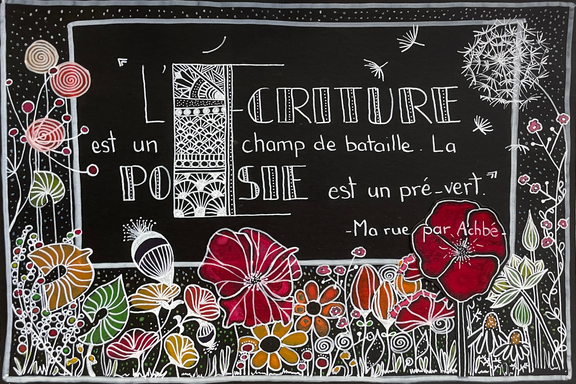 "L'ÉCRITURE
est un champ de bataille. La
POÉSIE est un pré-vert."
-Ma rue par Achbé